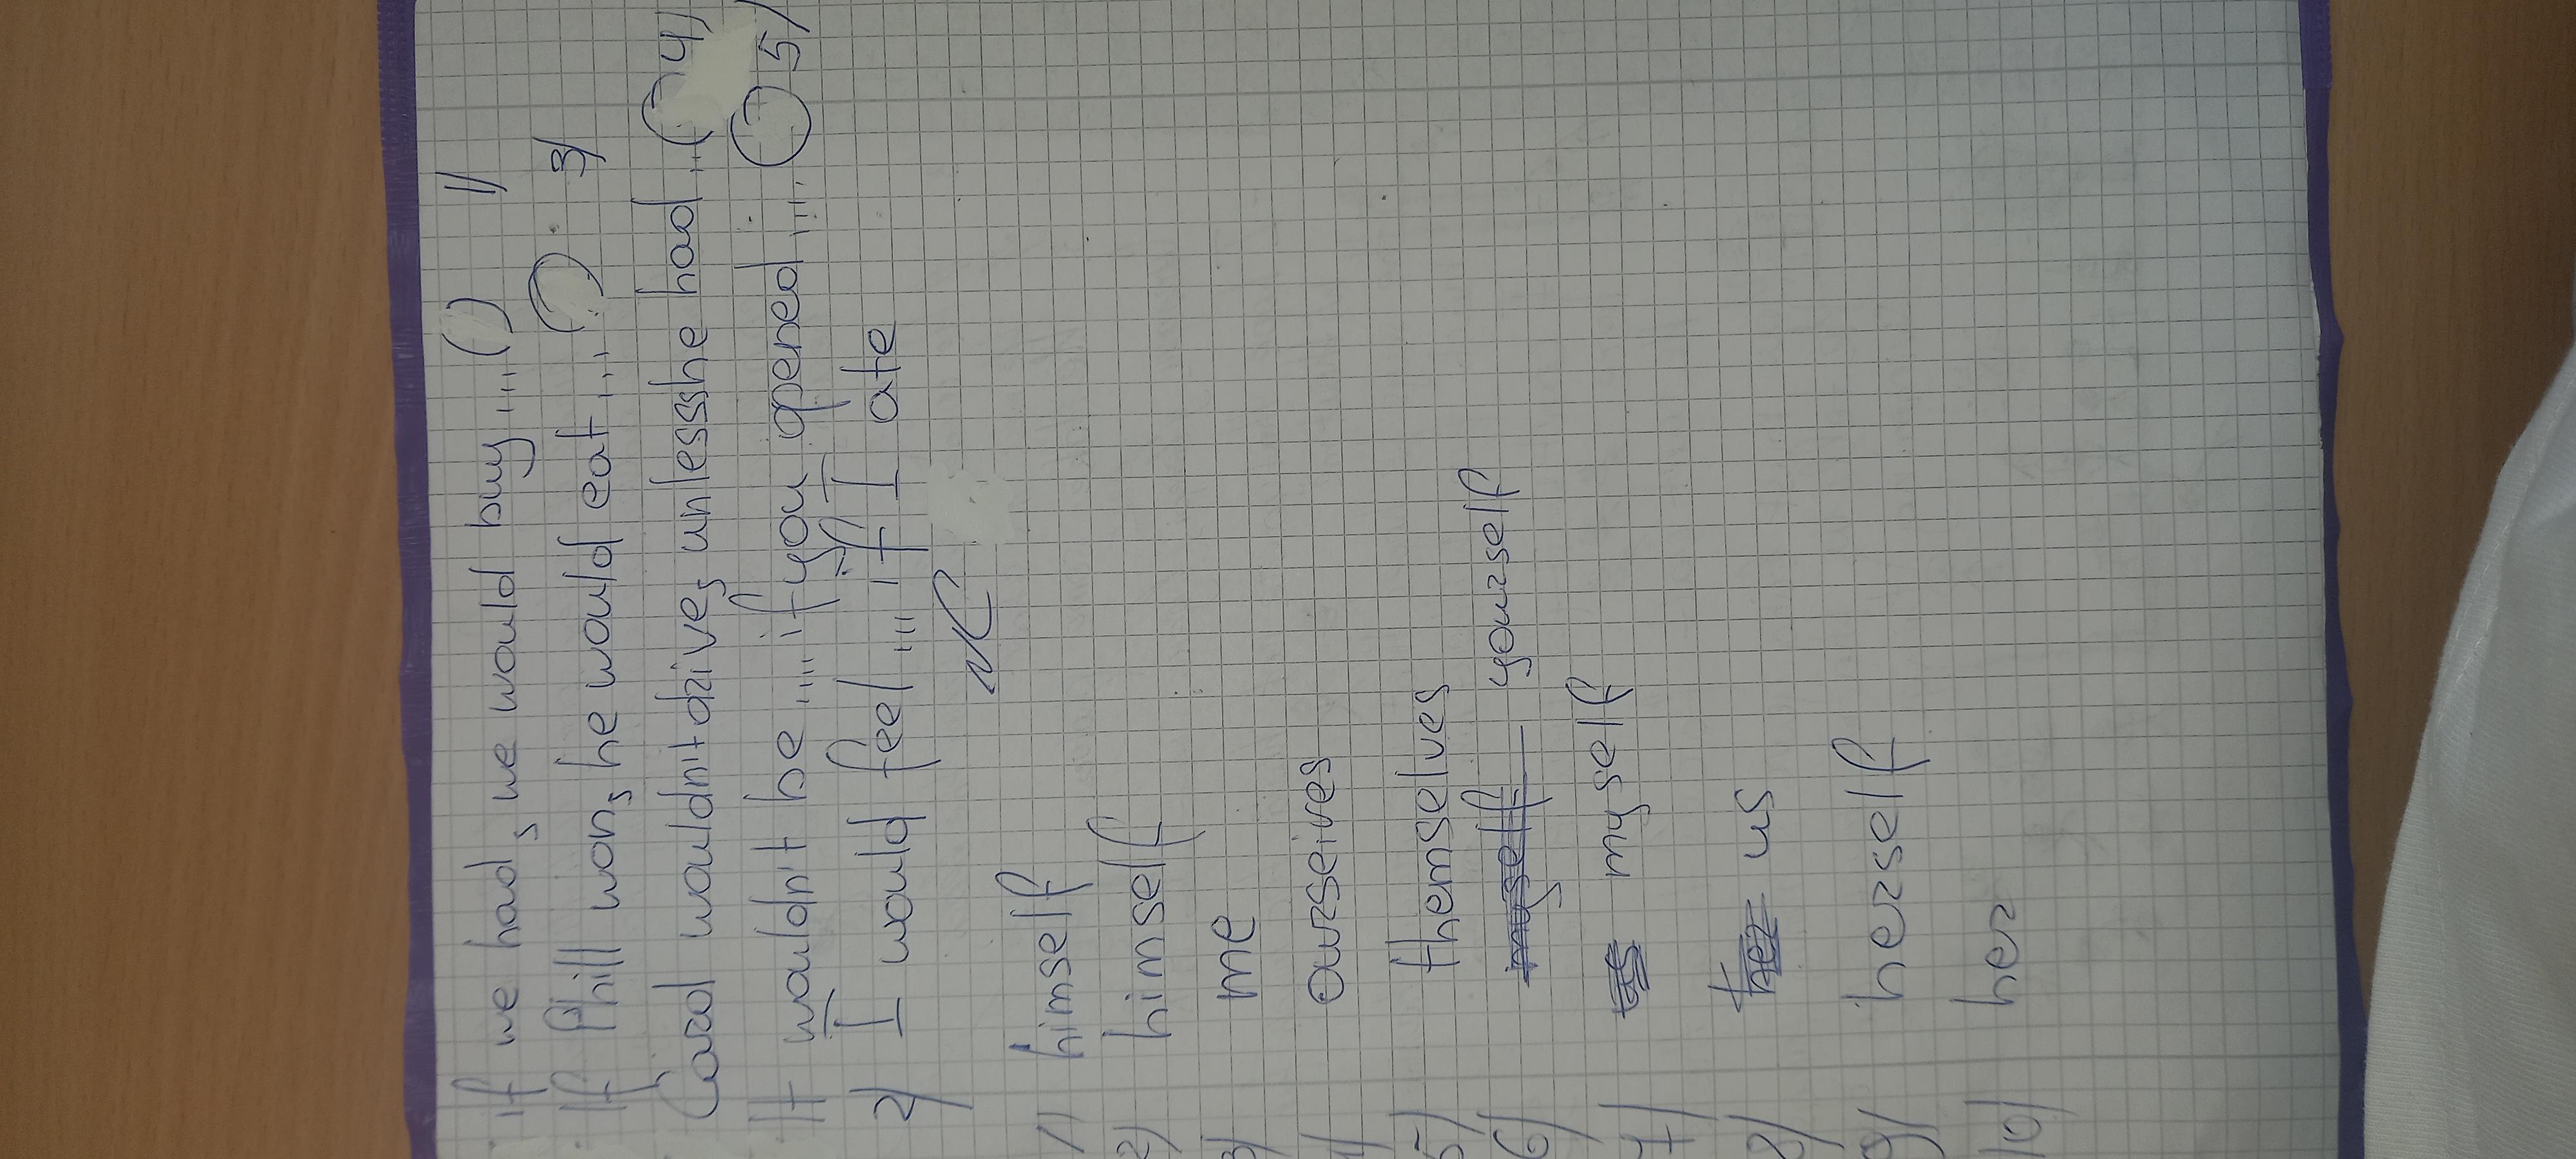 if we had, we would buy....( ) 1)
If Phill won, he would eat.... ( ) 3)
Carol wouldn't drive, unless she had..( ) 4)
It wouldn't be .... if you opened .... ( ) 5)
2) I would feel ... if I ate
1) himself
2) himself
3) me
4) ourseives
5) themselves
6) myself yourself
7) us myself
8) her us
9) herself
10) her